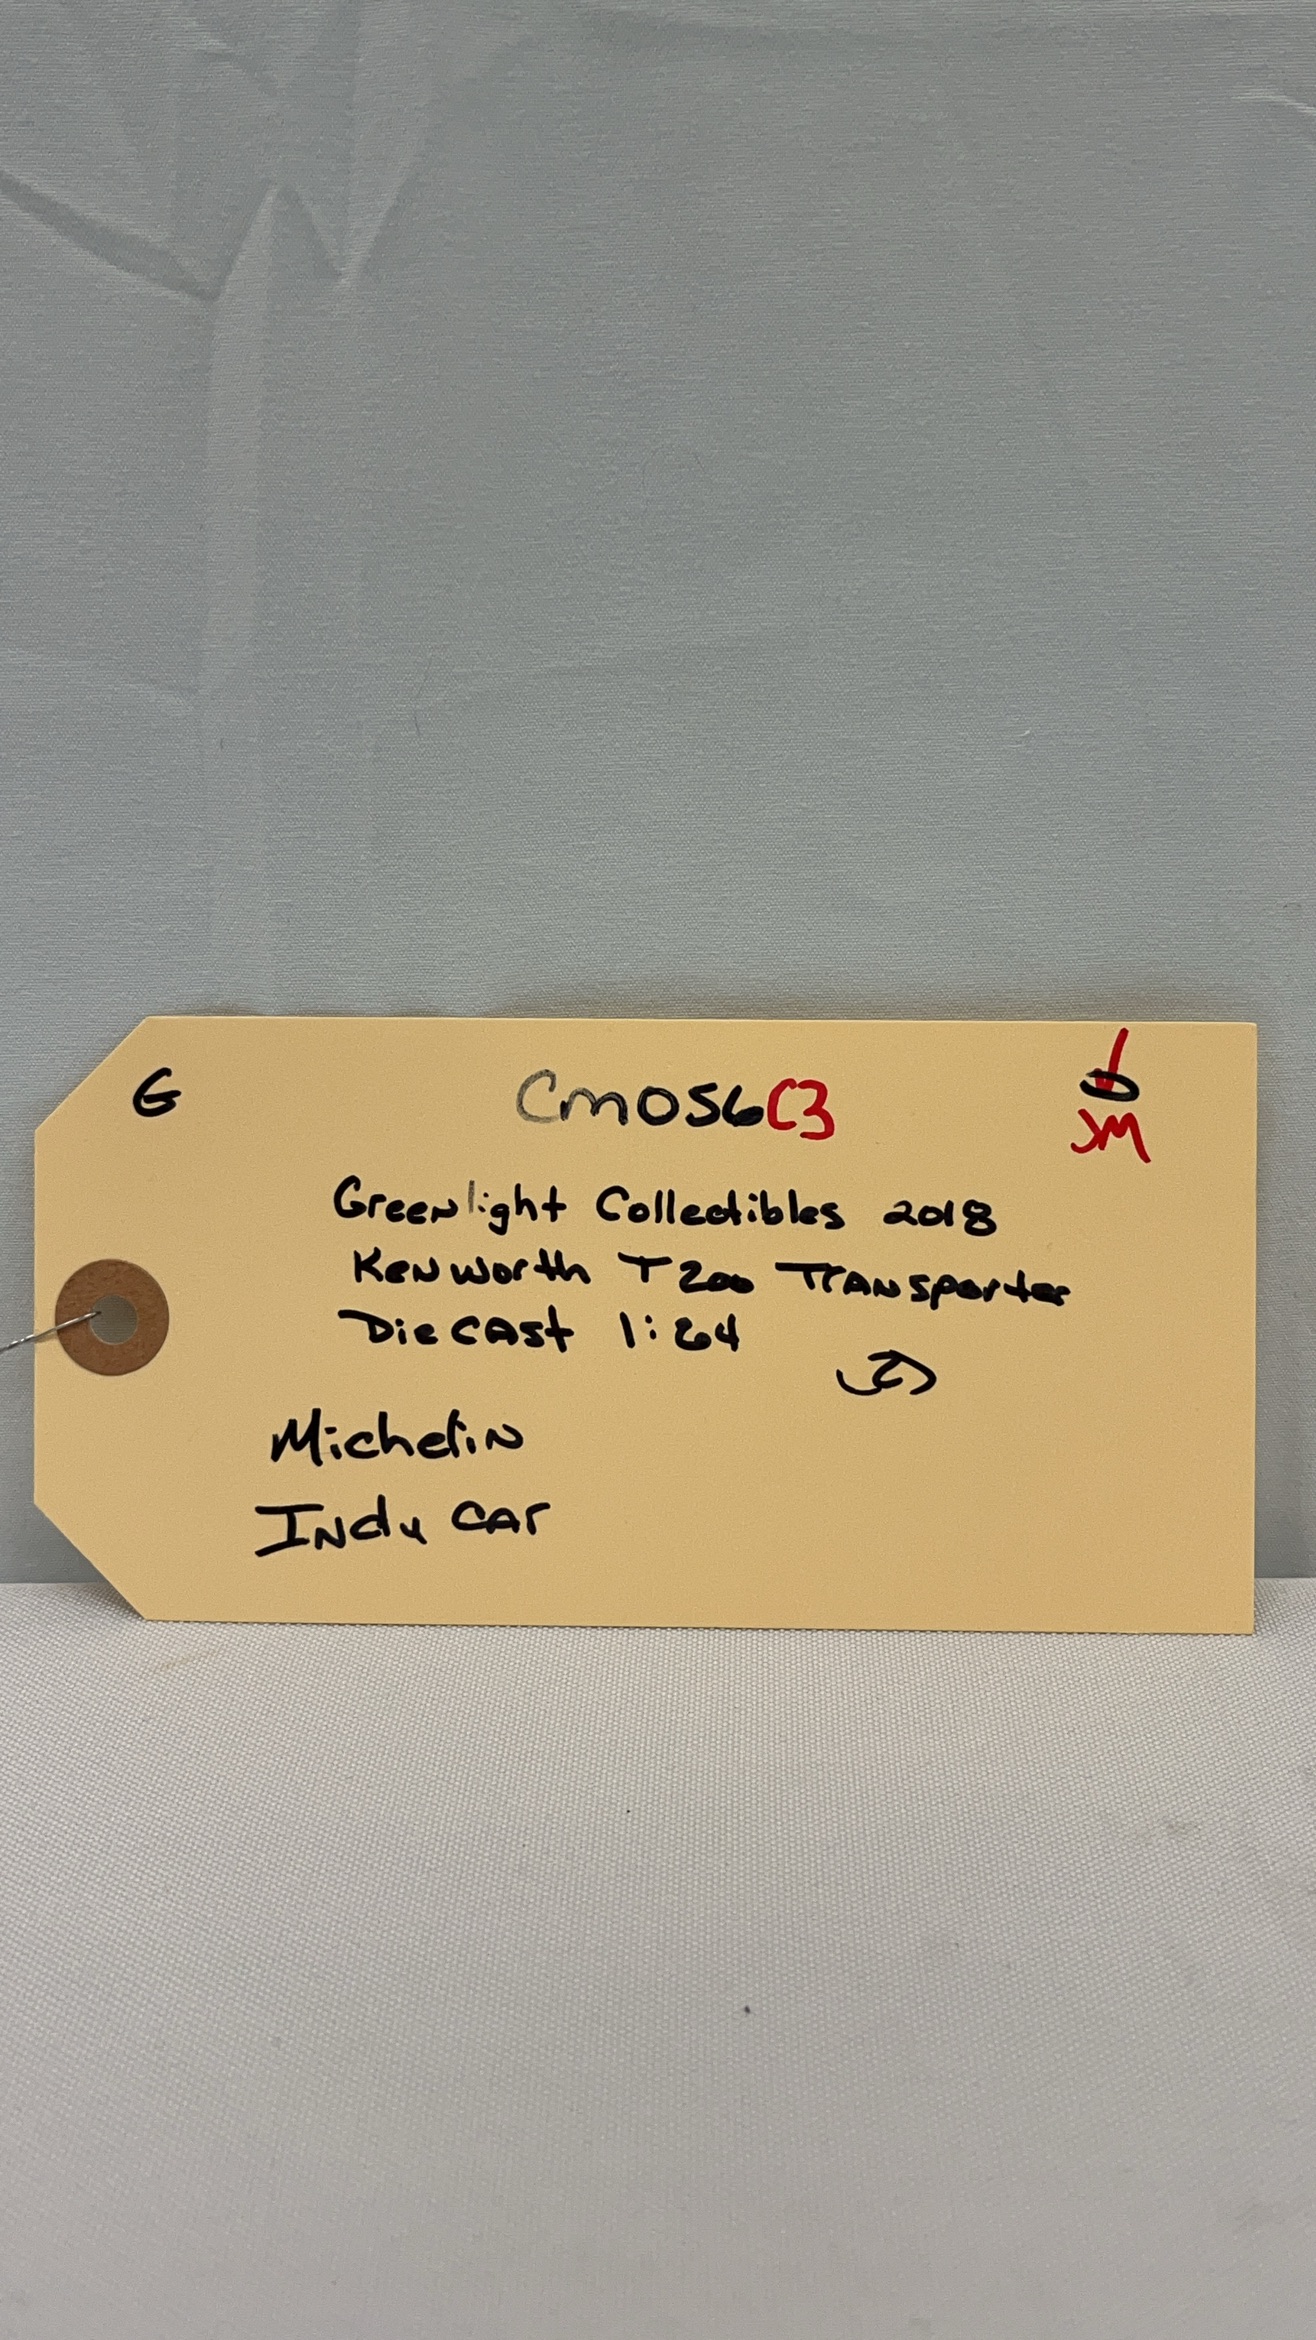 G CM056C3 D
JM
Greenlight Collectibles 2018
Kenworth T200 Transporter
Diecast 1:64
(2)
Michelin
Indy Car